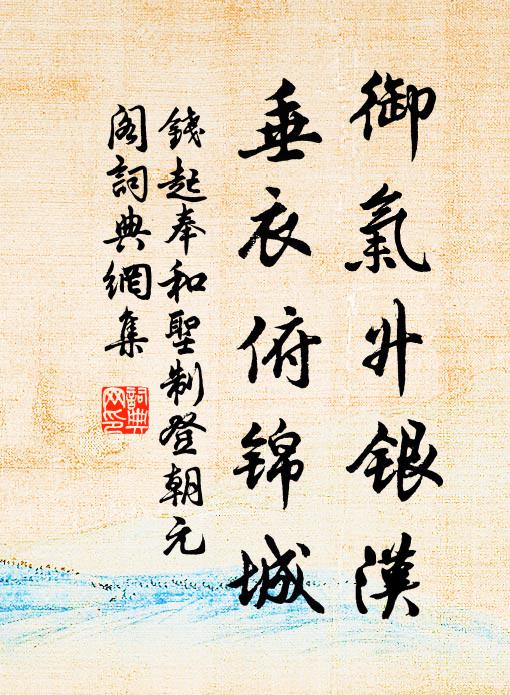 御氣升銀漢
垂衣俯錦城
錢起奉和聖制登朝元
阁詞典網集
詞典
网印